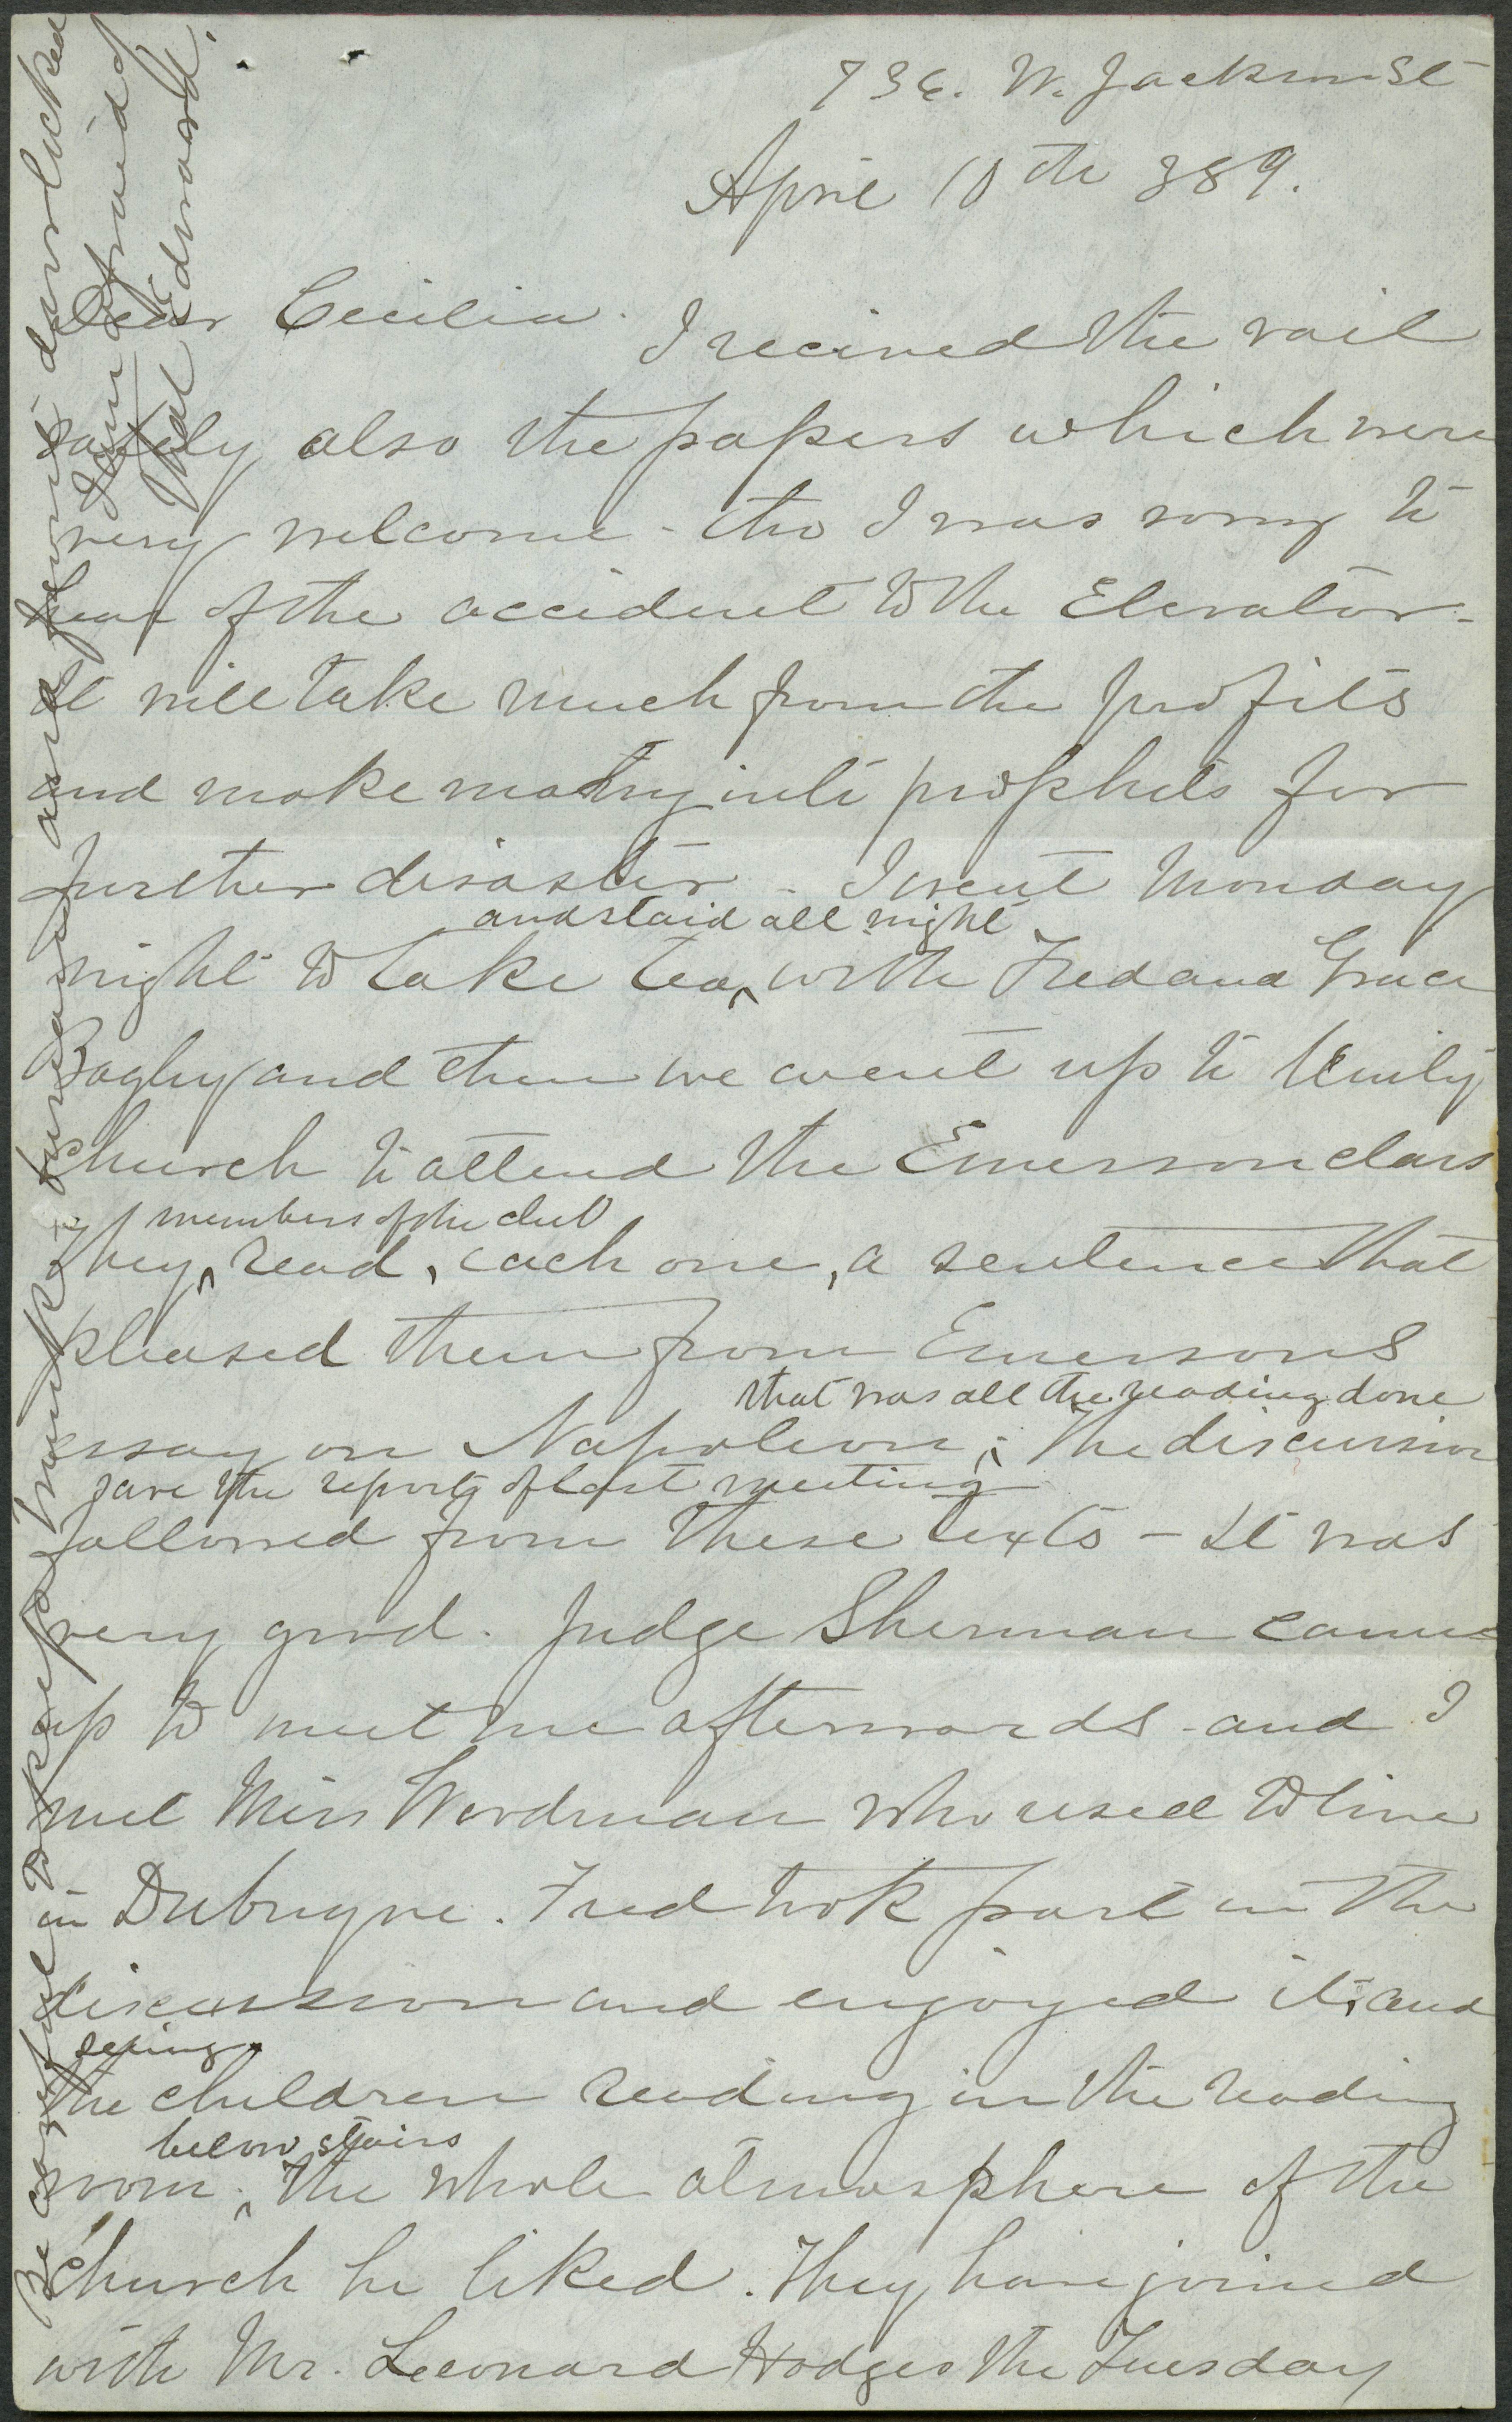 736. W. Jackson St
April 10th 889.
Dear Cecilia. I recieved the vail
safely also the papers which were
very welcome - tho I was sorry to
hear of the accident to the Elevator.
It will take much from the profits
and make many into prophets for
further disaster - I went Monday
and staid all night
night to take tea, with Fred and Grace
Bagley and then we went up to Unity
Church to attend the Emerson class
members of the club
They, read, each one, a sentence that
pleased them from Emersons
that was all the reading done
essay on Napoleon; The discussion
save the report of last meeting
followed from these texts - It was
very good. Judge Sherman came
up to meet me afterwards - and I
met Miss Woodman who used to live
in Dubuque. Fred took part in the
discussion and enjoyed it, and
seeing
the children reading in the reading
below stairs
room. The whole atmosphere of the
church he liked. They have joined
with Mr. Leonard Hodges the Tuesday
Be careful to keep trunks bureaus and front door locked
I am afraid of
that Edward.